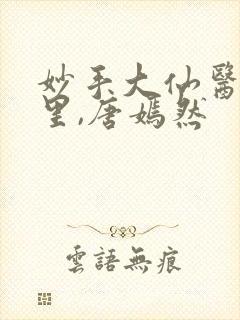 妙手大仙醫
里,唐嫣然
雲語無痕